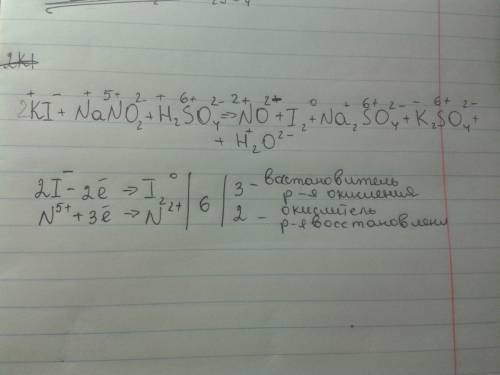 2KI
2K⁺I⁻ + Na⁺N⁵⁺O₂²⁻ + H₂⁺S⁶⁺O₄²⁻ ⇒ N²⁺O²⁻ + I₂⁰ + Na₂⁺S⁶⁺O₄²⁻ + K₂⁻S⁶⁺O₄²⁻ +
+ H₂⁺O²⁻
2I⁻ - 2ē → I₂⁰ | 6 | 3 - востановитель
р-я окисления
N⁵⁺ + 3ē → N²⁺ | 2 - окислитель
р-я восстановлени